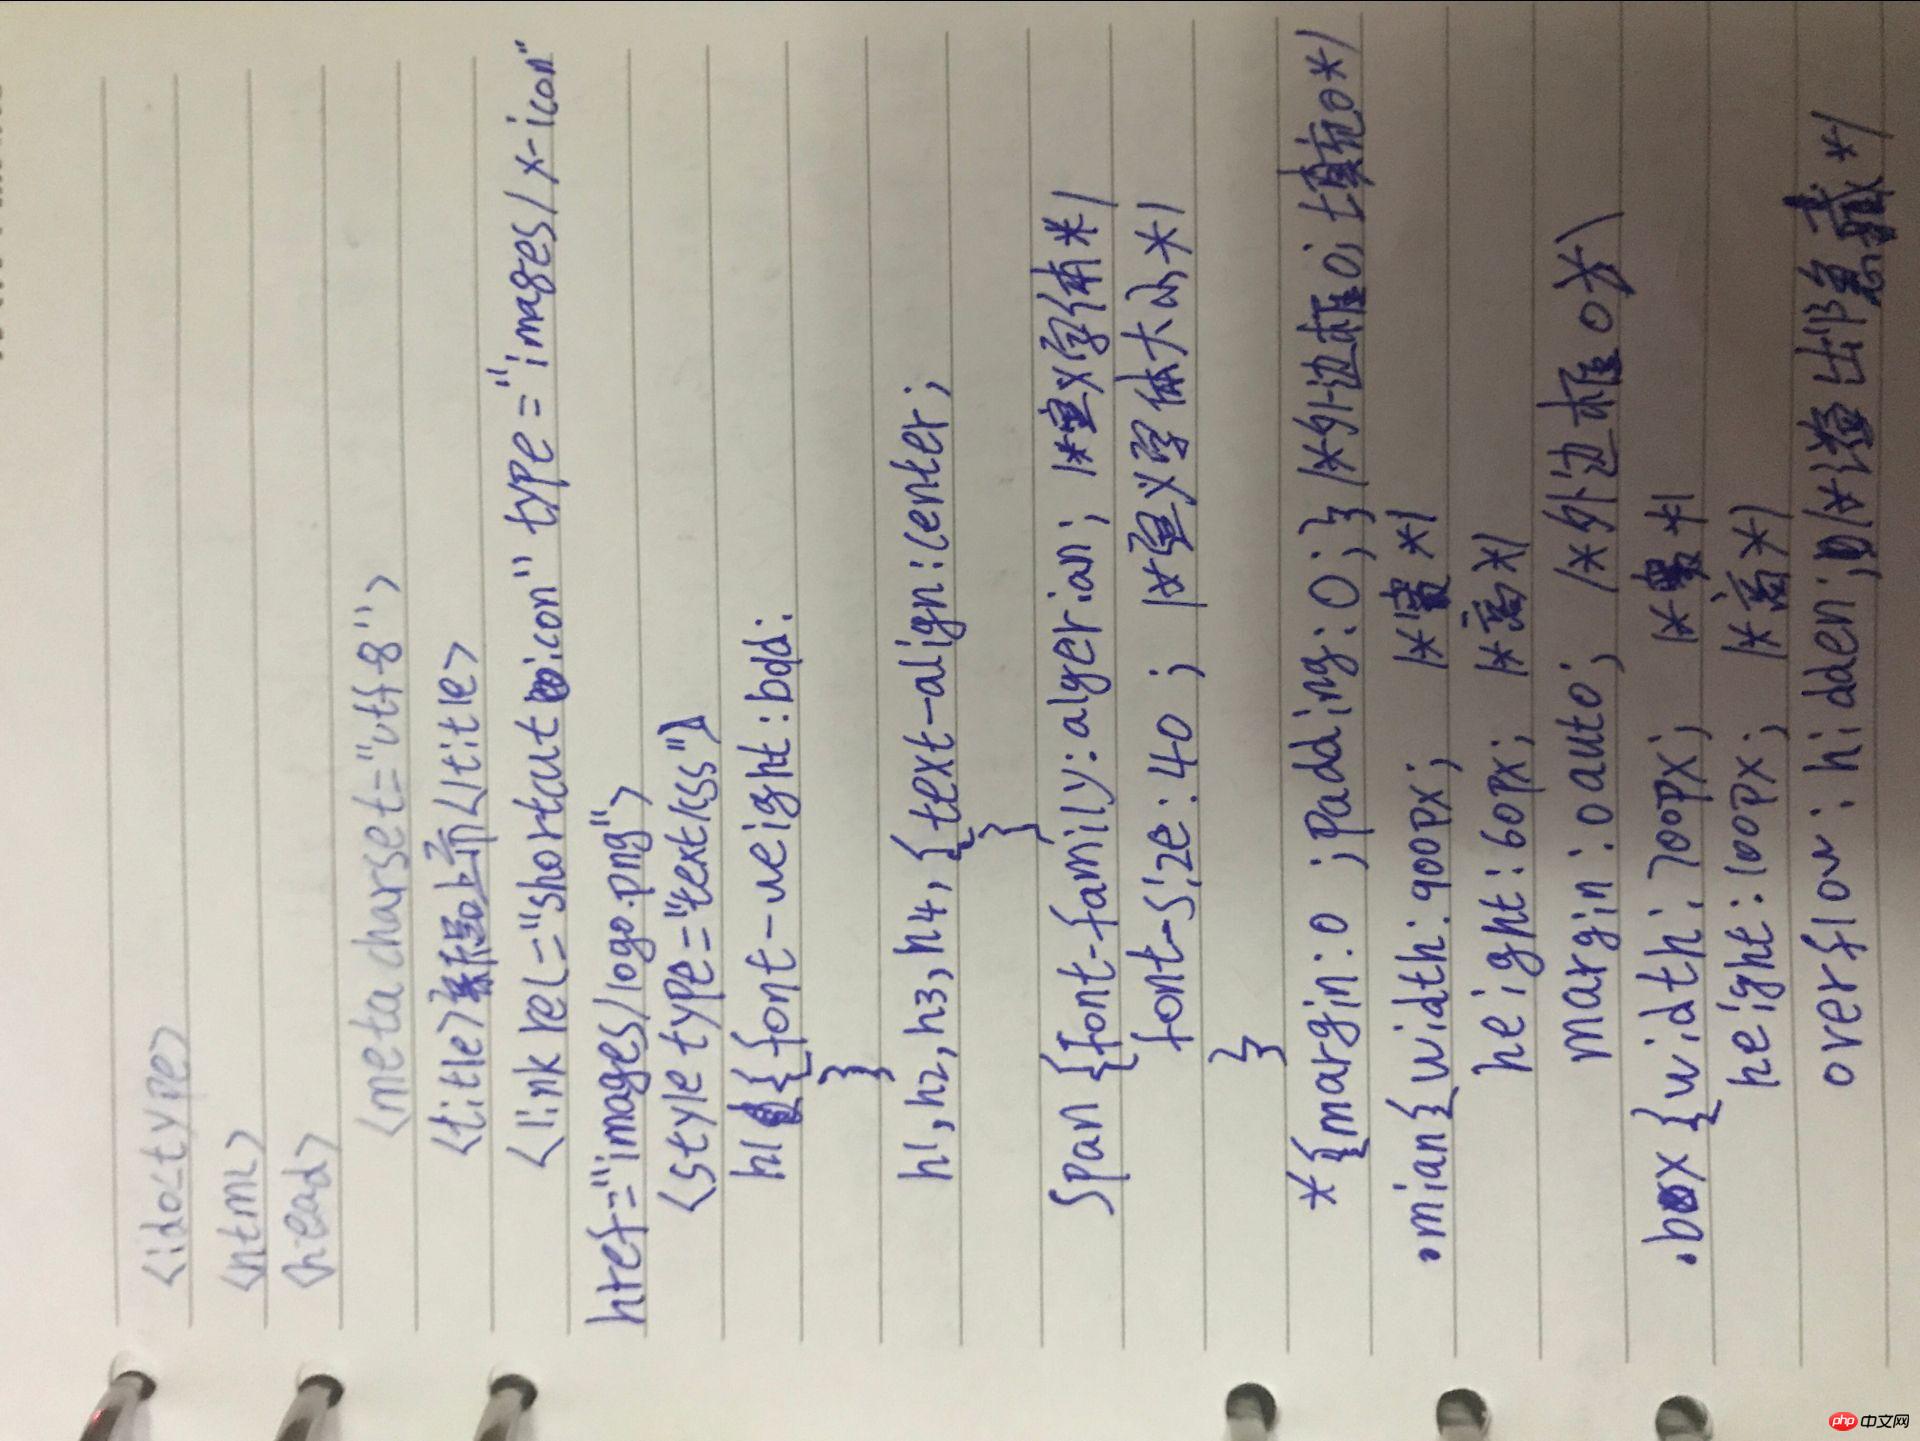 <!doctype>
<html>
<head>
<meta charset="utf-8">
<title>新品上市</title>
<link rel="shortcut icon" type="images/x-icon"
href="images/logo.png">
<style type="text/css">
h1 {font-weight:bold:
}
h1,h2,h3,h4,{text-align:center;
}
span {font-family:algerian; /*定义字体*/
font-size:40; /*定义字体大小*/
}
*{margin:0;padding:0;} /*外边框0;填充0*/
.mian{width:900px; /*宽*/
height:60px; /*高*/
margin:0auto; /*外边框0*\
.box{width:700px; /*宽*/
height:100px; /*高*/
overflow:hidden; /*溢出部隐藏*/
php 中文网